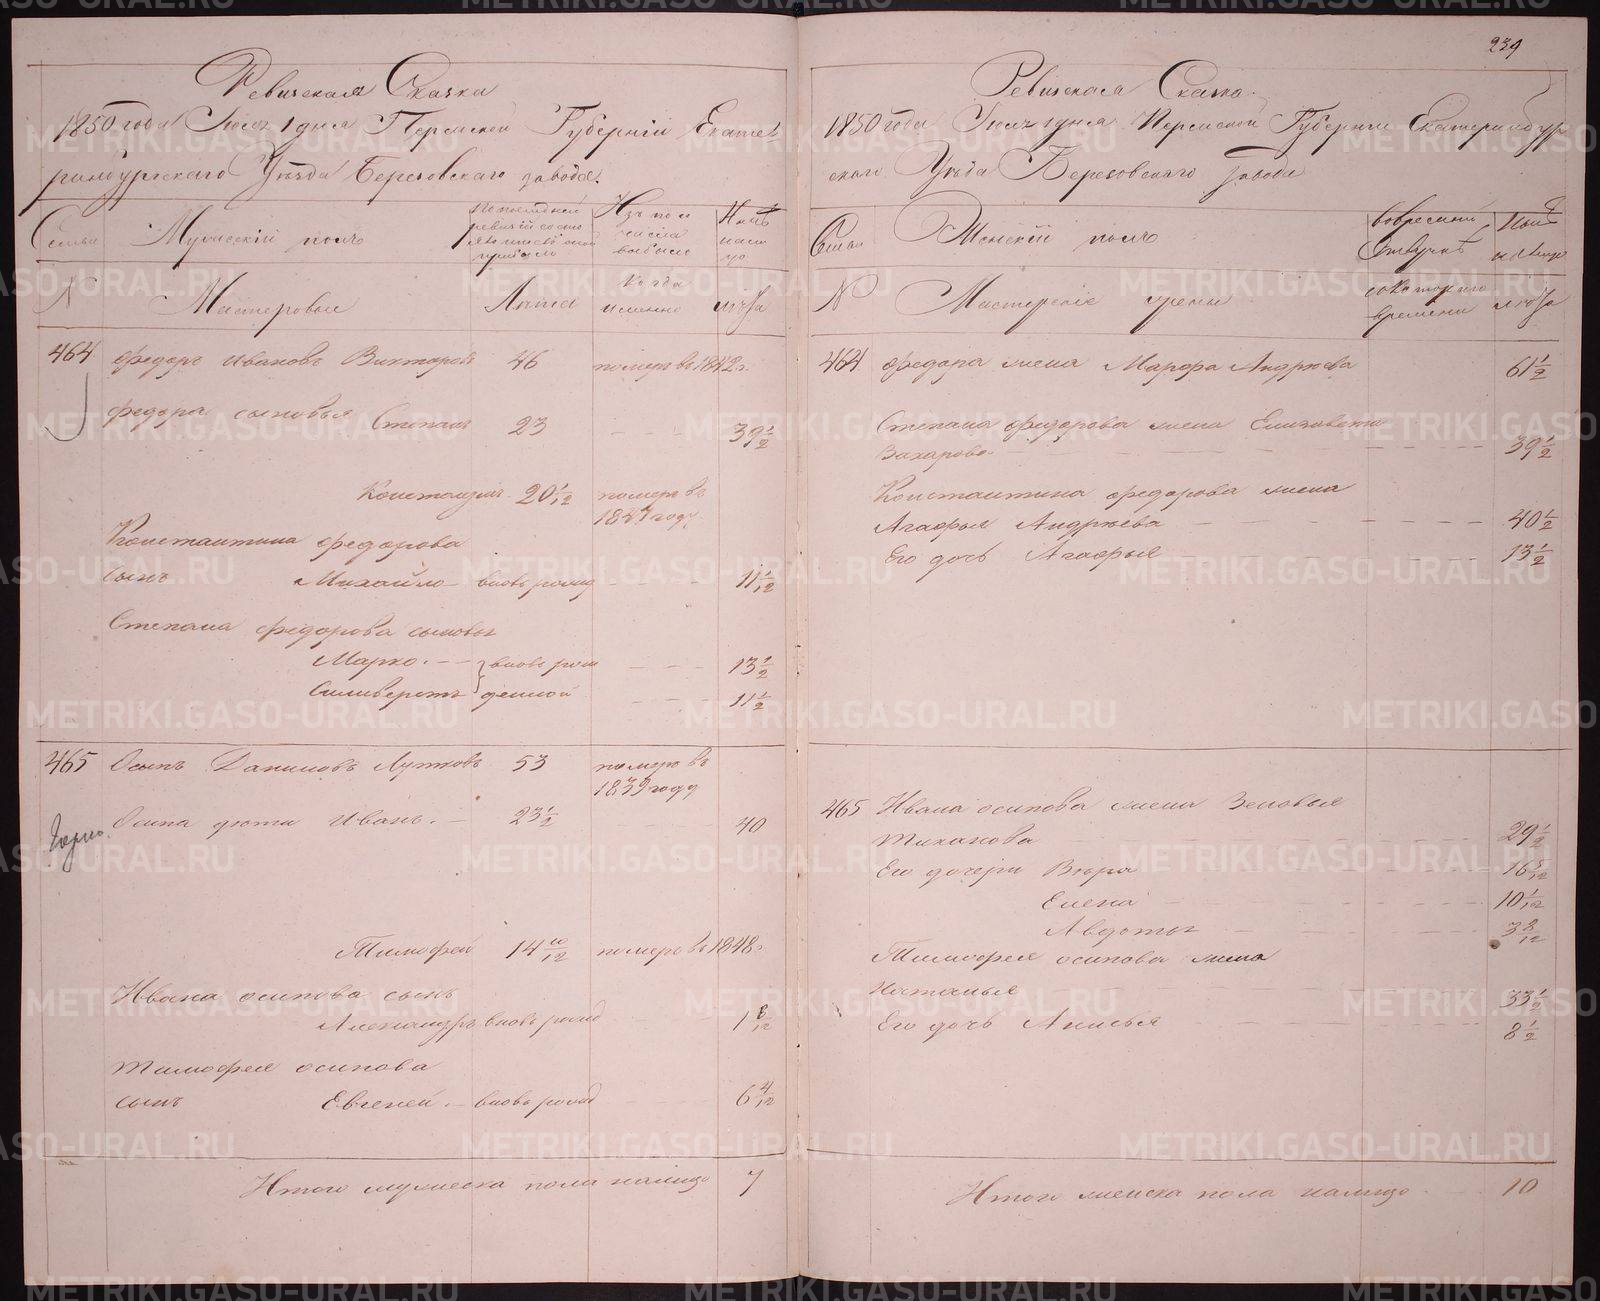 239
Ревизская Сказка
1850 года Июля 1 дня Пермской Губернии Екате-
ринбургского Уезда Березовского завода.
Семьи
Мужеский полъ
По последней ревизии состо
Изъ того числа выбыло
Ныне
№
Мастеровые
Лета
Когда именно
464 Федоръ Ивановъ Вихторовъ 46 померъ въ 1842 г.
Федора сыновья Степанъ 23 - - - 39 1/2
Константинъ 20 1/12 померъ въ
1847 году
Константина Федорова
сынъ Михайло - вновь рожд - - - 11 1/12
Степана Федорова сыновья
Марко. - - вновь рож - - - 13 1/2
Силиверстъ денной - - - 11 1/2
465 Осипъ Даниловъ Лутковъ 53 померъ въ
1839 году
Осипа дети Иванъ. - 23 1/2 - - 40
Тимофей 14 10/12 померъ въ 1848 г
Ивана осипова сынъ
Александръ вновь рожд - - - 1 8/12
Тимофея осипова
сынъ Евгеней. - вновь рожд - - 6 4/12
Итого мужеска пола налицо 7
Ревизская Сказка.
1850 года Июля 1 дня Пермской Губернии Екатеринбур-
скаго Уезда Березовскаго завода
Женский полъ
№
Мастерские жены
времени
464 Федора жена Марфа Андреева 61 1/2
Степана Федорова жена Елизавета
Захарова. - - - 39 1/2
Константина Федорова жена
Агафья Андреева - - - 40 1/2
Его дочь Агафья - - - 13 1/2
465 Ивана осипова жена Зеновья
Тиханова - - - 29 1/2
Его дочери - - - 16 5/12
Елена - - - 10 1/12
Авдотья - - - 3 8/12
Тимофея осипова жена
Наталья - - - 33 1/2
Его дочь Анисья - - - 8 1/2
Итого женска пола налицо 10
METRIKI.GASO-URAL.RU